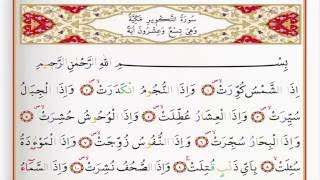 سُورَةُ التَّكْوِيرِ مَكِّيَّةٌ
وَهِيَ تِسْعٌ وَعِشْرُونَ آيَةً
بِسْمِ اللّٰهِ الرَّحْمٰنِ الرَّحِيمِ
اِذَا الشَّمْسُ كُوِّرَتْۙ ﴿١﴾ وَاِذَا النُّجُومُ انْكَدَرَتْۙ ﴿٢﴾ وَاِذَا الْجِبَالُ
سُيِّرَتْۙ ﴿٣﴾ وَاِذَا الْعِشَارُ عُطِّلَتْۙ ﴿٤﴾ وَاِذَا الْوُحُوشُ حُشِرَتْۙ ﴿٥﴾
وَاِذَا الْبِحَارُ سُجِّرَتْۙ ﴿٦﴾ وَاِذَا النُّفُوسُ زُوِّجَتْۙ ﴿٧﴾ وَاِذَا الْمَوْءُ۫دَةُ
سُئِلَتْۙ ﴿٨﴾ بِاَيِّ ذَنْبٍ قُتِلَتْۚ ﴿٩﴾ وَاِذَا الصُّحُفُ نُشِرَتْۙ ﴿١٠﴾ وَاِذَا السَّمَٓاءُ